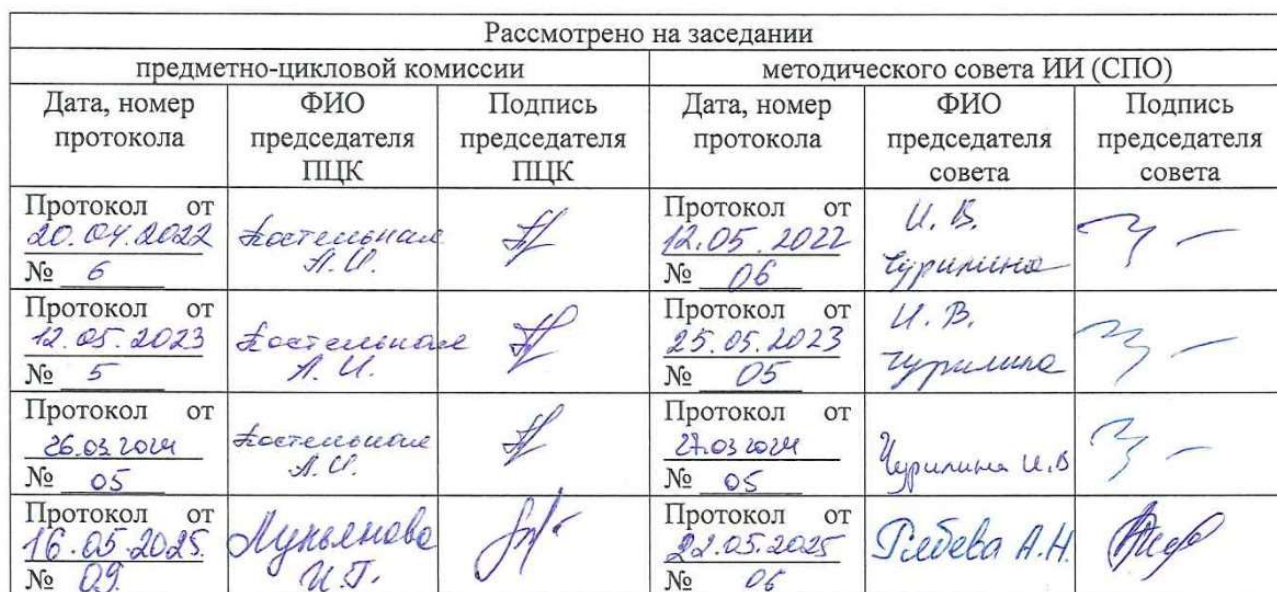 Рассмотрено на заседании
предметно-цикловой комиссии
методического совета ИИ (СПО)
Дата, номер
протокола
ФИО
председателя
ПЦК
Подпись
председателя
ПЦК
Дата, номер
протокола
ФИО
председателя
совета
Подпись
председателя
совета
Протокол от
20.04.2022
№ 6
Костельная
Л.И.
Протокол от
12.05.2022
№ 06
И.В.
Чурилина
Протокол от
12.05.2023
№ 5
Костельная
Л.И.
Протокол от
25.05.2023
№ 05
И.В.
Чурилина
Протокол от
26.03.2024
№ 05
Костельная
Л.И.
Протокол от
27.03.2024
№ 05
Чурилина И.В
Протокол от
16.05.2025.
№ 09.
Лукьянова
И.Г.
Протокол от
22.05.2025
№ 06
А.Н.